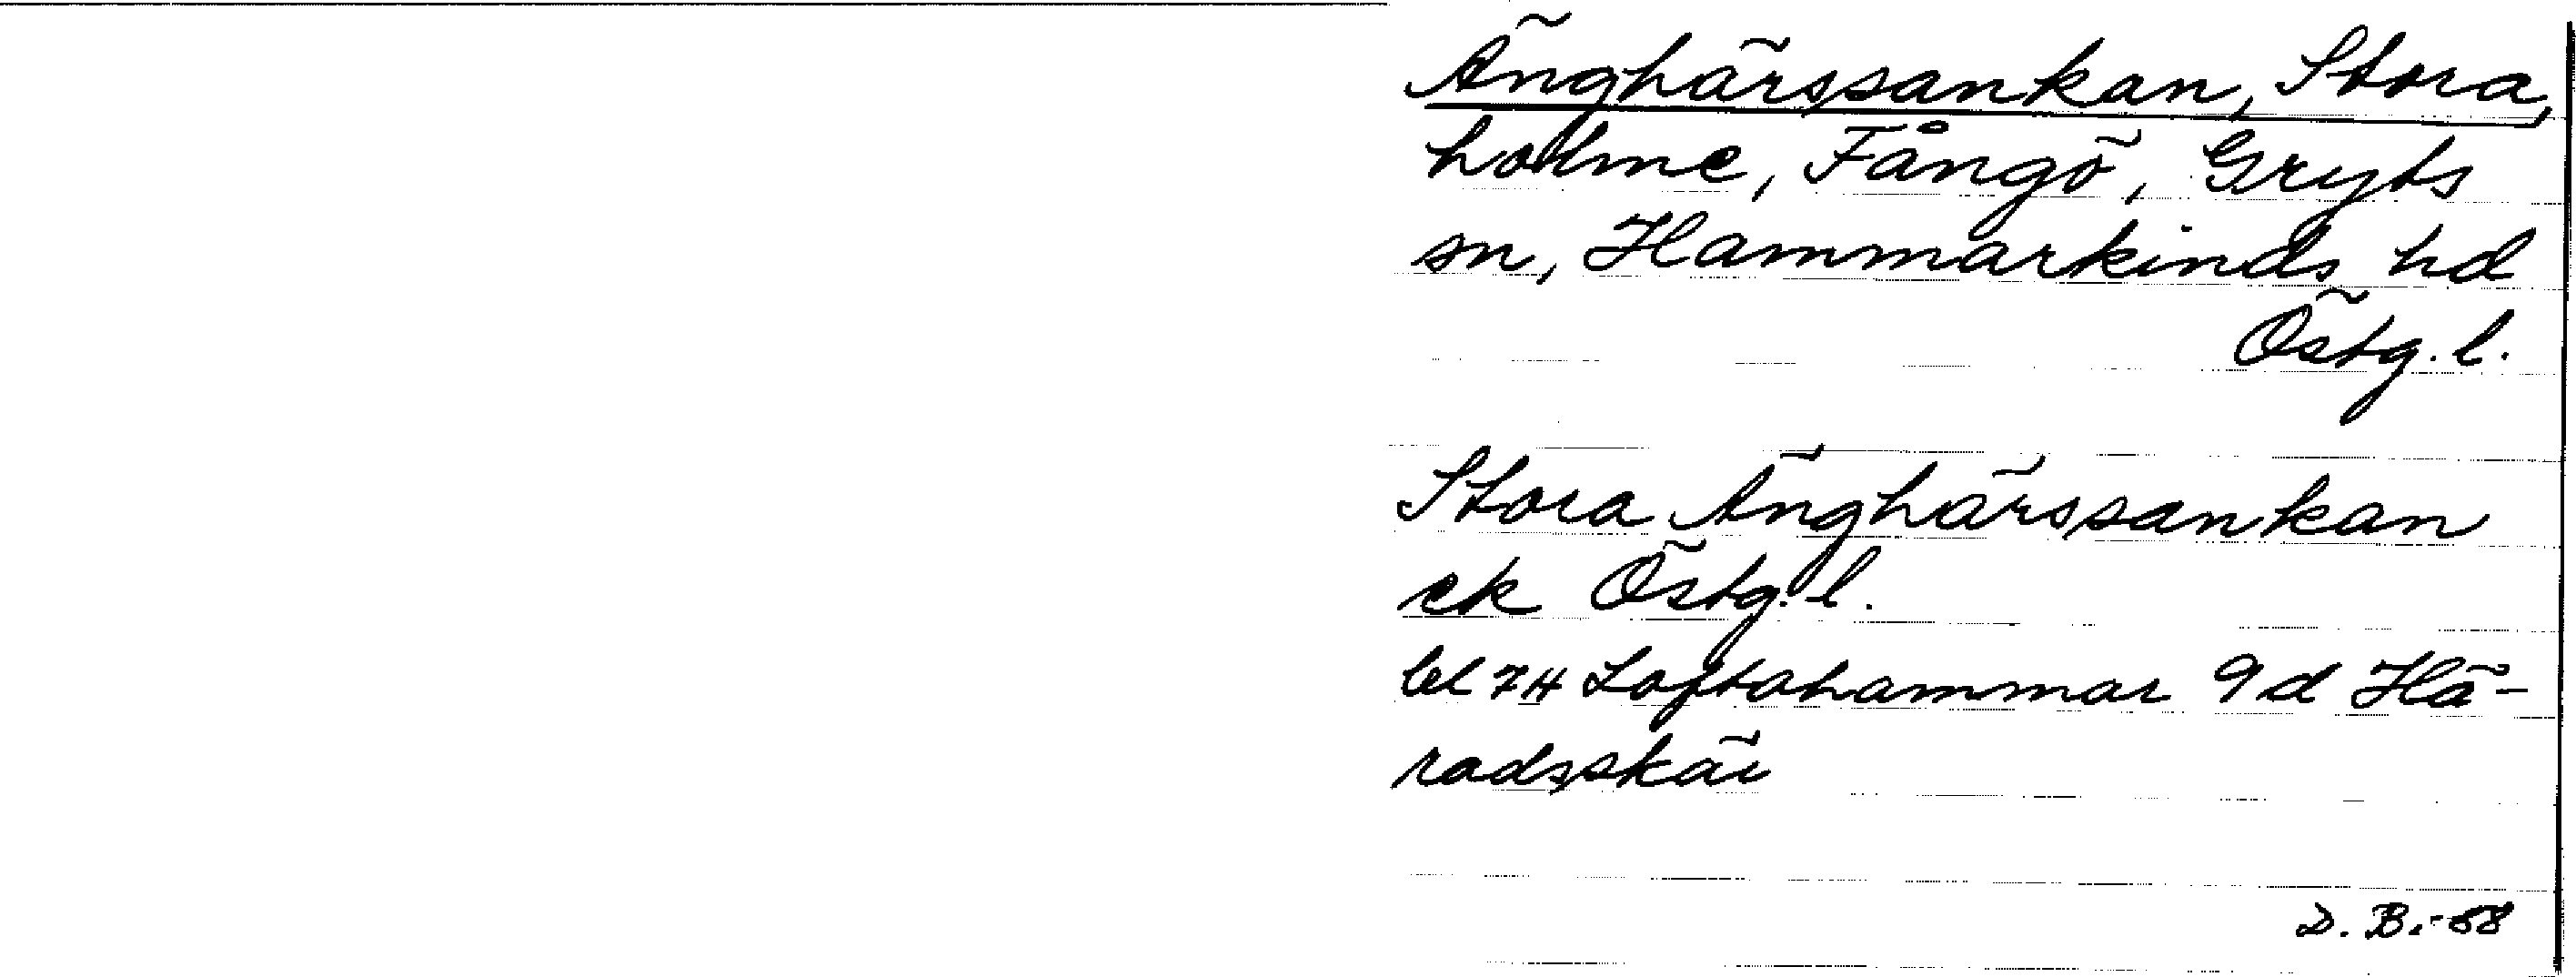 Änghärssankan, Stora,
holme, Fångö, Gryts
sn, Hammarkinds hd
Östg. l.
Stora Änghärssankan
ek Östg. l.
bl 7H Loftahammar 9d Hä-
radsskär
D. B. -58